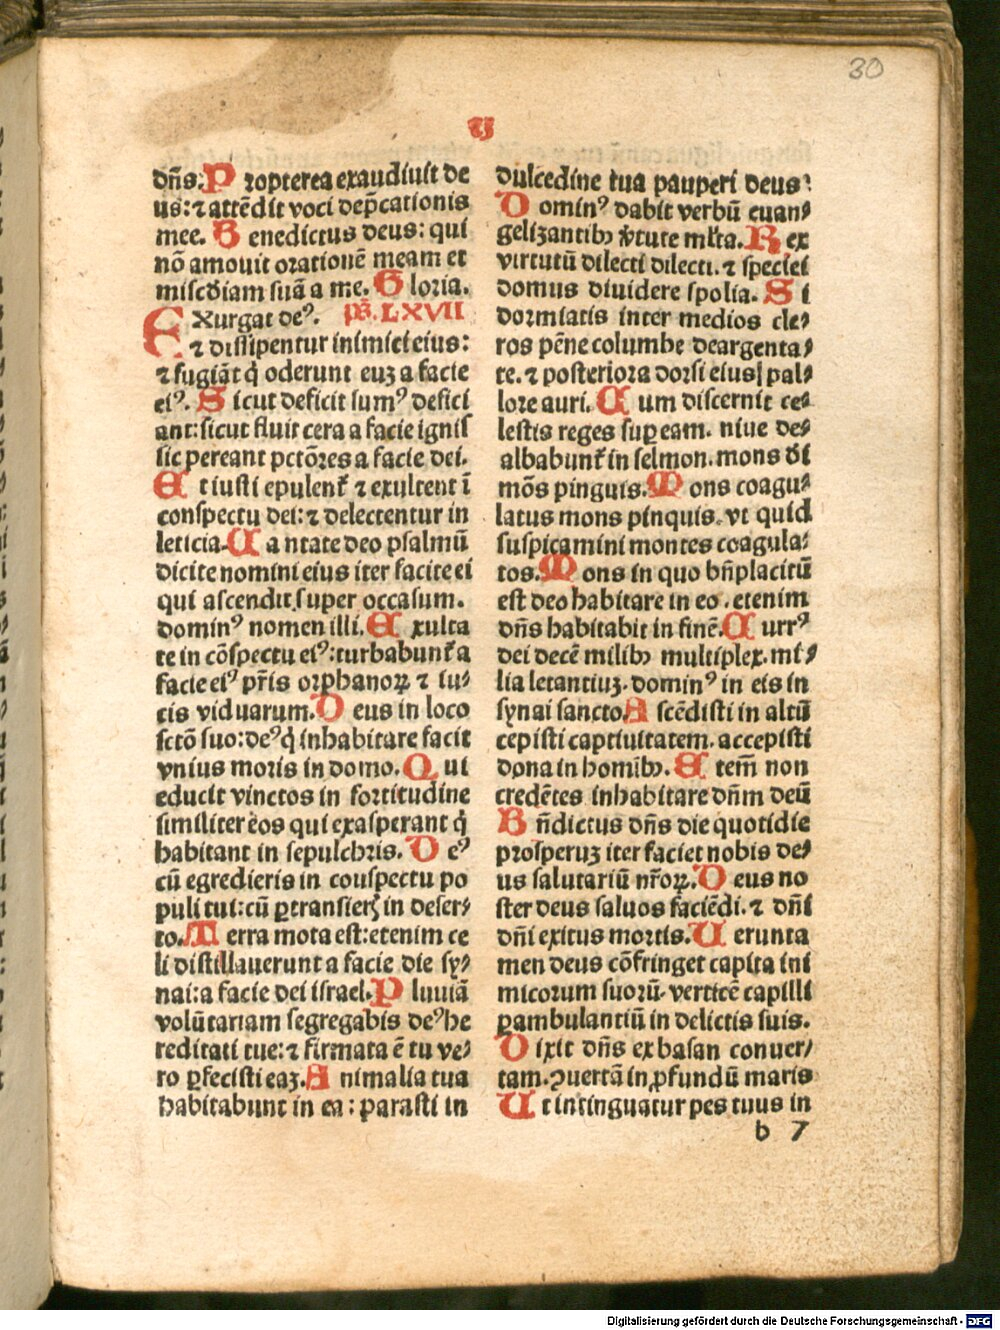 30
V
dn̄s. Propterea exaudiuit de
us: ⁊ attēdit voci dep̄cationis
mee. Benedictus deus: qui
nō amouit orationē meam et
misc̄diam suā a me. Gloria.
EXurgat de⁹. ps̄. LXVII
⁊ dissipentur inimici eius:
⁊ fugiāt q̄ oderunt euʒ a facie
ei⁹. Sicut deficit fum⁹ defici
ant: sicut fluit cera a facie ignis
sic pereant pctōres a facie dei.
Et iusti epulent᷑ ⁊ exultent ī
conspectu dei: ⁊ delectentur in
leticia. Cantate deo psalmū
dicite nomini eius iter facite ei
qui ascendit super occasum.
domin⁹ nomen illi. Exulta
te in cōspectu ei⁹: turbabunt᷑ a
facie ei⁹ pr̄is orphanoꝝ ⁊ iu⸗
cis viduarum. Deus in loco
sctō suo: de⁹ q̄ inhabitare facit
vnius moris in domo. Qui
educit vinctos in fortitudine
similiter eos qui exasperant q̄
habitant in sepulchris. De⁹
cū egredieris in couspectu po
puli tui: cū ꝑtransierꝭ in deser⸗
to. Terra mota est: etenim ce
li distillauerunt a facie die sy⸗
nai: a facie dei israel. Pluuiā
volūtariam segregabis de⁹ he
reditati tue: ⁊ firmata ē tu ve⸗
ro ꝑfecisti eaʒ. Animalia tua
habitabunt in ea: parasti in
dulcedine tua pauperi deus:
Domin⁹ dabit verbū euan⸗
gelizantibꝫ v̄tute ml̄ta. Rex
virtutū dilecti dilecti. ⁊ speciei
domus diuidere spolia. Si
dormiatis inter medios cle⸗
ros pēne columbe deargenta⸗
te. ⁊ posteriora dorsi eius pal⸗
lore auri. Cum discernit ce⸗
lestis reges suꝑ eam. niue de⸗
albabunt᷑ in selmon. mons d̄i
mōs pinguis. Mons coagu⸗
latus mons pinquis. vt quid
suspicamini montes coagula⸗
tos. Mons in quo bn̄placitū
est deo habitare in eo. etenim
dn̄s habitabit in finē. Curr⁹
dei decē milibꝫ multiplex. mi⸗
lia letantiuʒ. domin⁹ in eis in
synai sancto. Ascēdisti in altū
cepisti captiuitatem. accepisti
dona in homībꝫ. Etem̄ non
credētes inhabitare dn̄m deū
Bn̄dictus dn̄s die quotidie
prosperuʒ iter faciet nobis de⸗
us salutariū nr̄oꝝ. Deus no
ster deus saluos faciēdi. ⁊ dn̄i
dn̄i exitus mortis. Uerunta
men deus cōfringet capita ini
micorum suorū. verticē capilli
ꝑambulantiū in delictis suis.
Dixit dn̄s ex basan conuer⸗
tam. ꝯuertā in ꝓfundū maris
Ut intinguatur pes tuus in
b 7
Digitalisierung gefördert durch die Deutsche Forschungsgemeinschaft - DFG